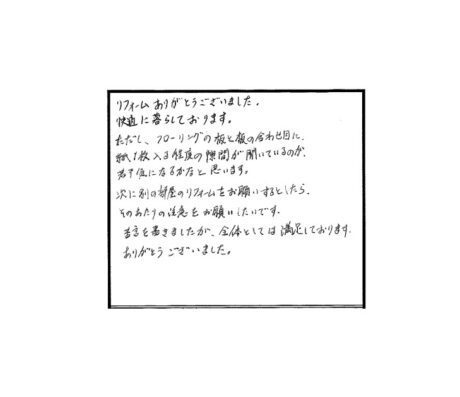 リフォームありがとうございました。
快適に暮らしております。
ただし、フローリングの板と板の合わせ目に、
紙1枚入る程度の隙間が開いているのが、
若干気になるかなと思います。
次に別の部屋のリフォームをお願いするとしたら、
そのあたりの注意をお願いしたいです。
苦言を書きましたが、全体としては満足しております。
ありがとうございました。